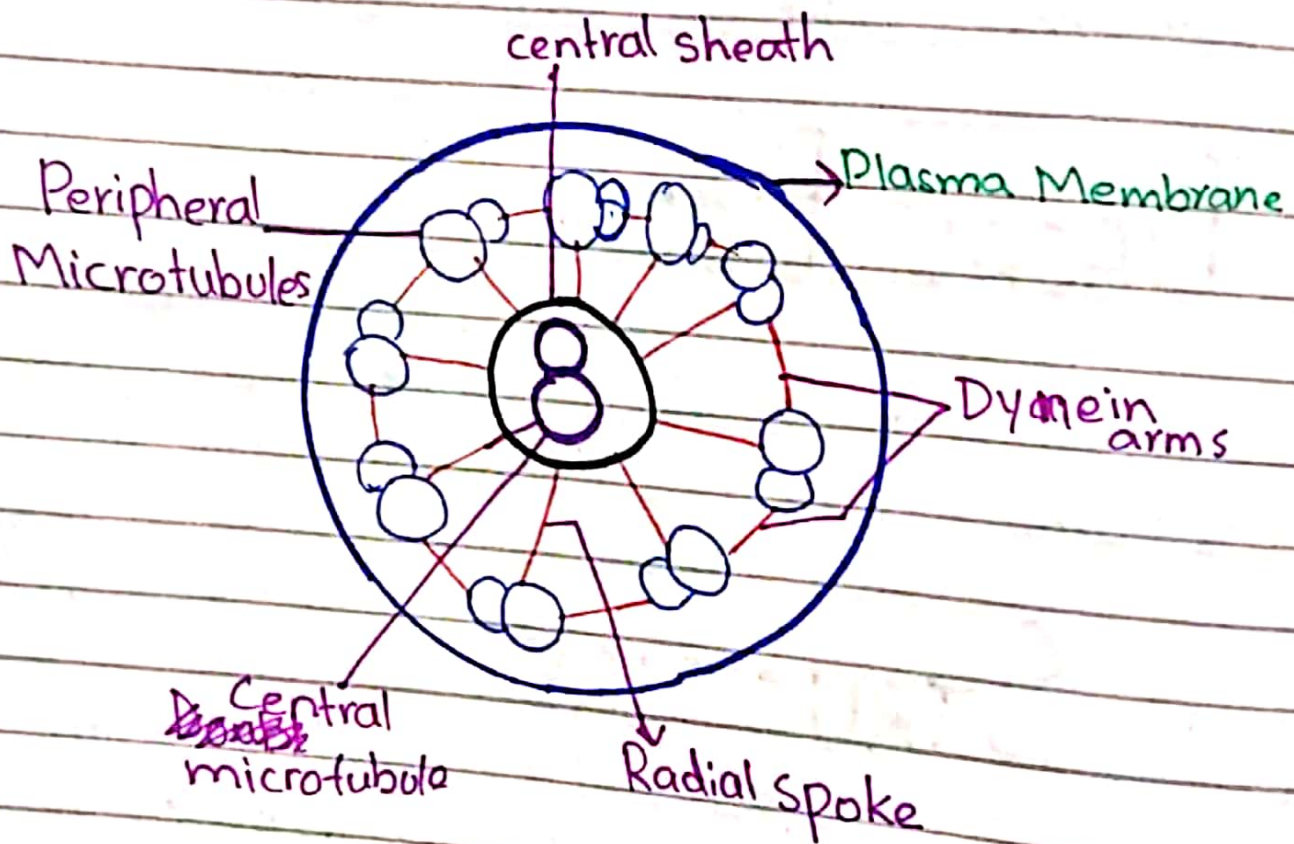 central sheath
Plasma Membrane
Peripheral
Microtubules
Dynein
arms
Central
microtubule
Radial Spoke